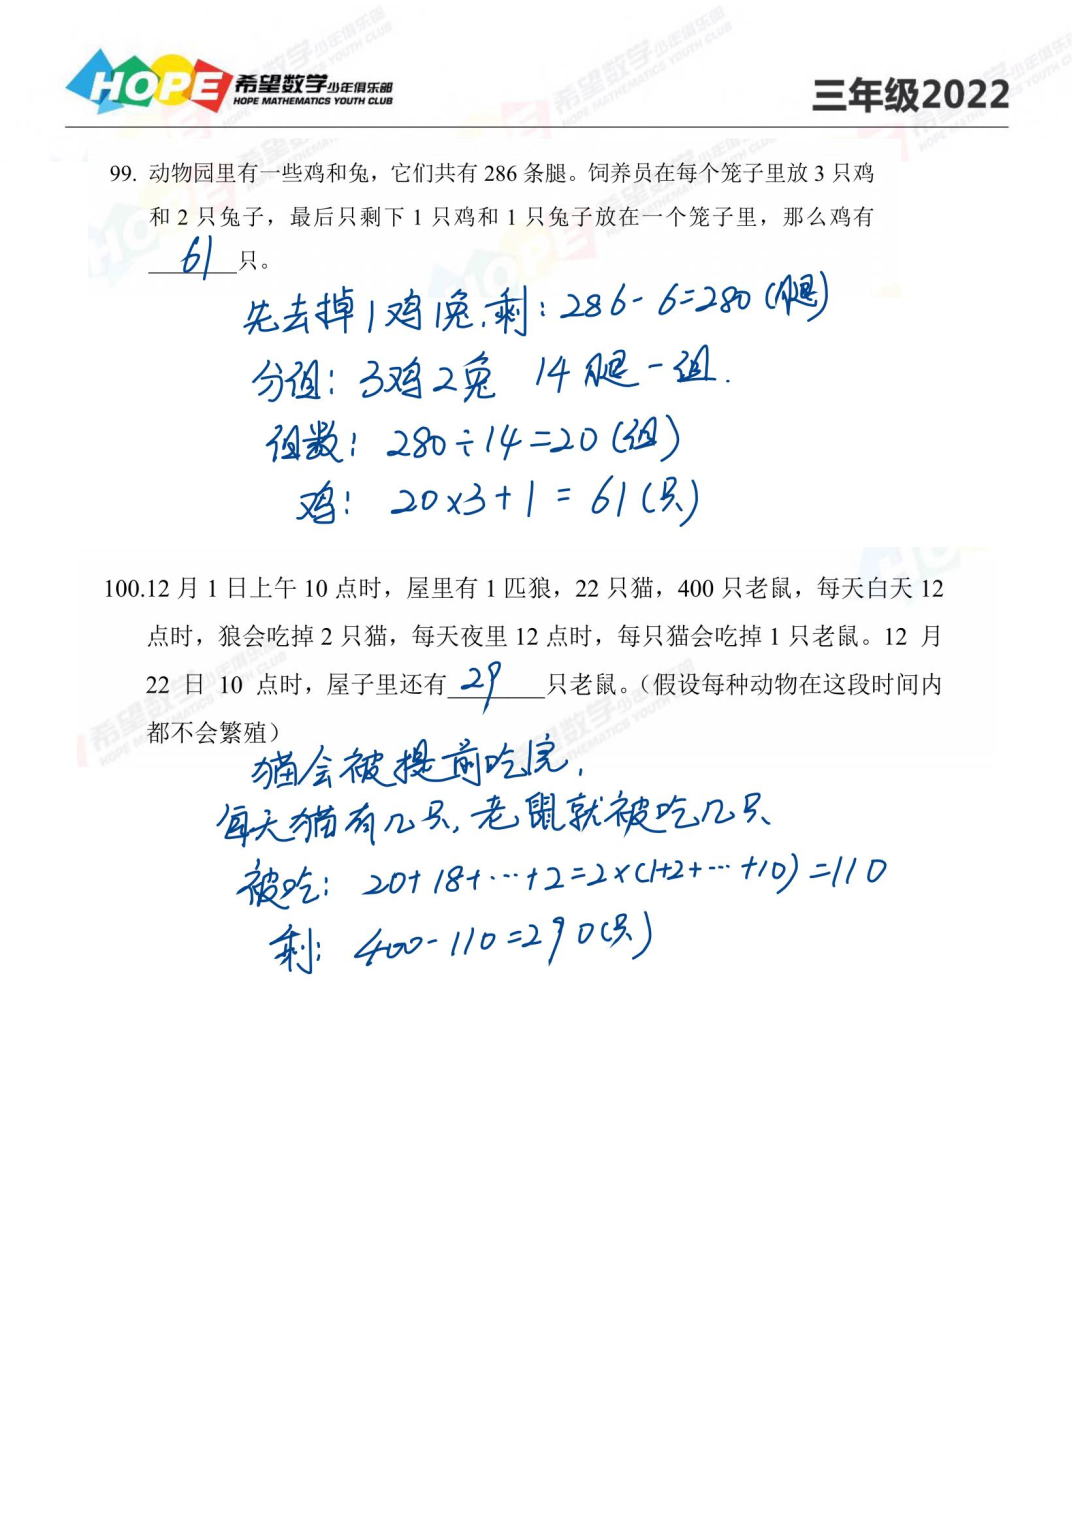 HOPE 希望数学少年俱乐部
HOPE MATHEMATICS YOUTH CLUB
三年级2022
99. 动物园里有一些鸡和兔，它们共有 286 条腿。饲养员在每个笼子里放 3 只鸡
和 2 只兔子，最后只剩下 1 只鸡和 1 只兔子放在一个笼子里，那么鸡有
61只。
先去掉1鸡1兔,剩:286-6=280(腿)
分组:3鸡2兔 14腿一组.
组数:280÷14=20(组)
鸡:20×3+1=61(只)
100.12 月 1 日上午 10 点时，屋里有 1 匹狼，22 只猫，400 只老鼠，每天白天 12
点时，狼会吃掉 2 只猫，每天夜里 12 点时，每只猫会吃掉 1 只老鼠。12 月
22 日 10 点时，屋子里还有29只老鼠。（假设每种动物在这段时间内
都不会繁殖）
猫会被提前吃完,
每天猫有几只,老鼠就被吃几只
被吃:20+18+…+2=2×(1+2+…+10)=110
剩:400-110=290(只)